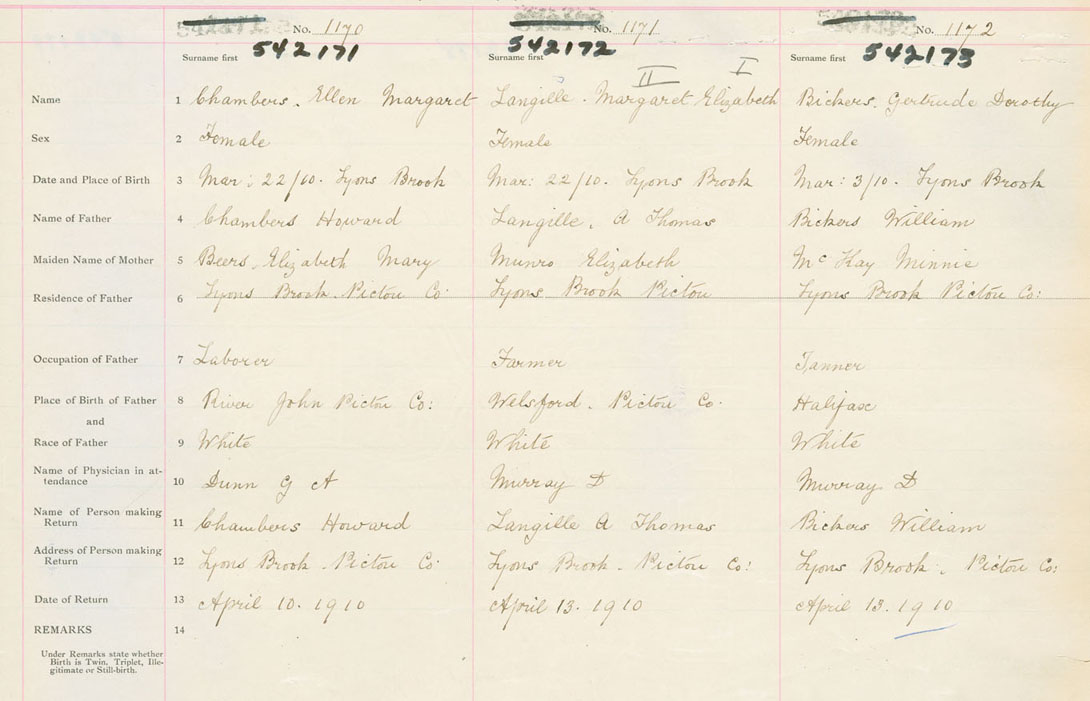 No. 1170 No. 1171 No. 1172
542171 542172 542173
Surname first Surname first Surname first
II I
Name 1 Chambers. Ellen Margaret Langille. Margaret Elizabeth Bickers. Gertrude Dorothy
Sex 2 Female Female Female
Date and Place of Birth 3 Mar: 22/10. Lyons Brook Mar: 22/10. Lyons Brook Mar: 3/10. Lyons Brook
Name of Father 4 Chambers Howard Langille. A Thomas Bickers William
Maiden Name of Mother 5 Beers, Elizabeth Mary Munro Elizabeth McKay Minnie
Residence of Father 6 Lyons Brook. Pictou Co: Lyons Brook Pictou Lyons Brook Pictou Co:
Occupation of Father 7 Laborer Farmer Tanner
Place of Birth of Father 8 River John Pictou Co: Welsford. Pictou Co. Halifax
and
Race of Father 9 White White White
Name of Physician in at-
tendance 10 Dunn G A Murray D Murray D
Name of Person making
Return 11 Chambers Howard Langille A Thomas Bickers William
Address of Person making
Return 12 Lyons Brook. Pictou Co: Lyons Brook. Pictou Co: Lyons Brook. Pictou Co:
Date of Return 13 April 10. 1910 April 13. 1910 April 13. 1910
REMARKS 14
Under Remarks state whether
Birth is Twin. Triplet, Ille-
gitimate or Still-birth.